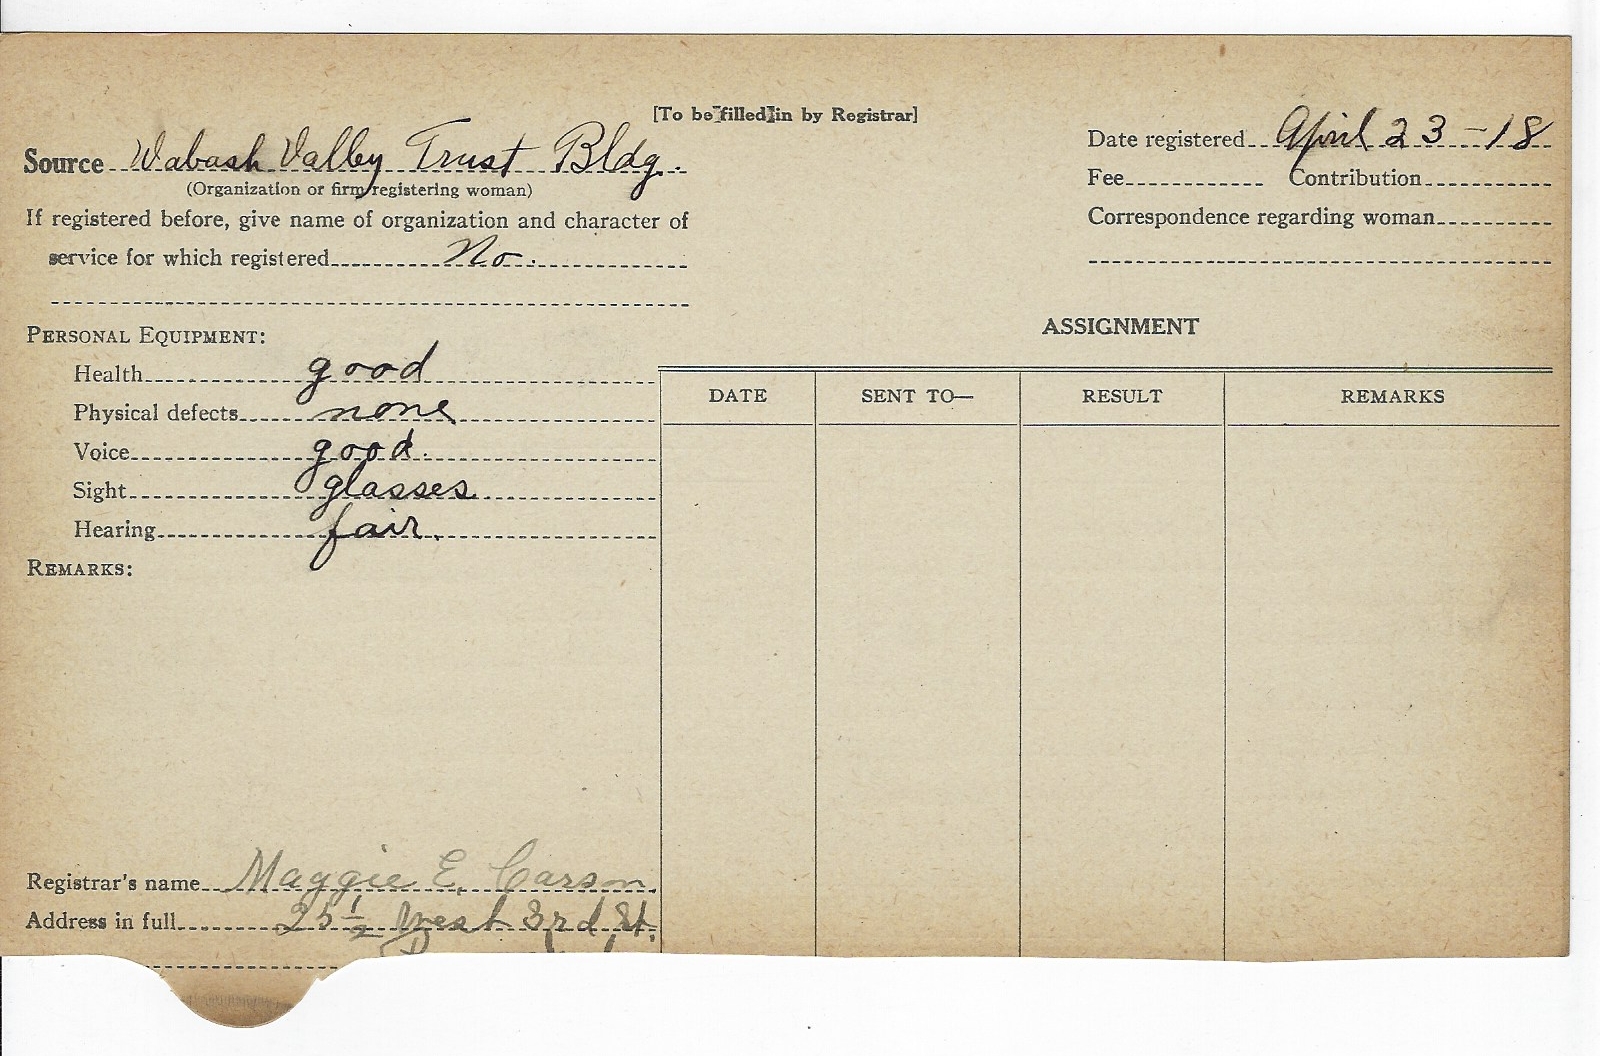 [To be filled in by Registrar]
Source Wabash Valley Trust Bldg.
(Organization or firm registering woman)
If registered before, give name of organization and character of
service for which registered No.
Date registered April 23-18
Fee Contribution
Correspondence regarding woman
PERSONAL EQUIPMENT:
Health good
Physical defects none
Voice good.
Sight glasses
Hearing fair.
REMARKS:
ASSIGNMENT
DATE SENT TO— RESULT REMARKS
Registrar's name Maggie E. Carson.
Address in full 25 1/2 West 3rd St.